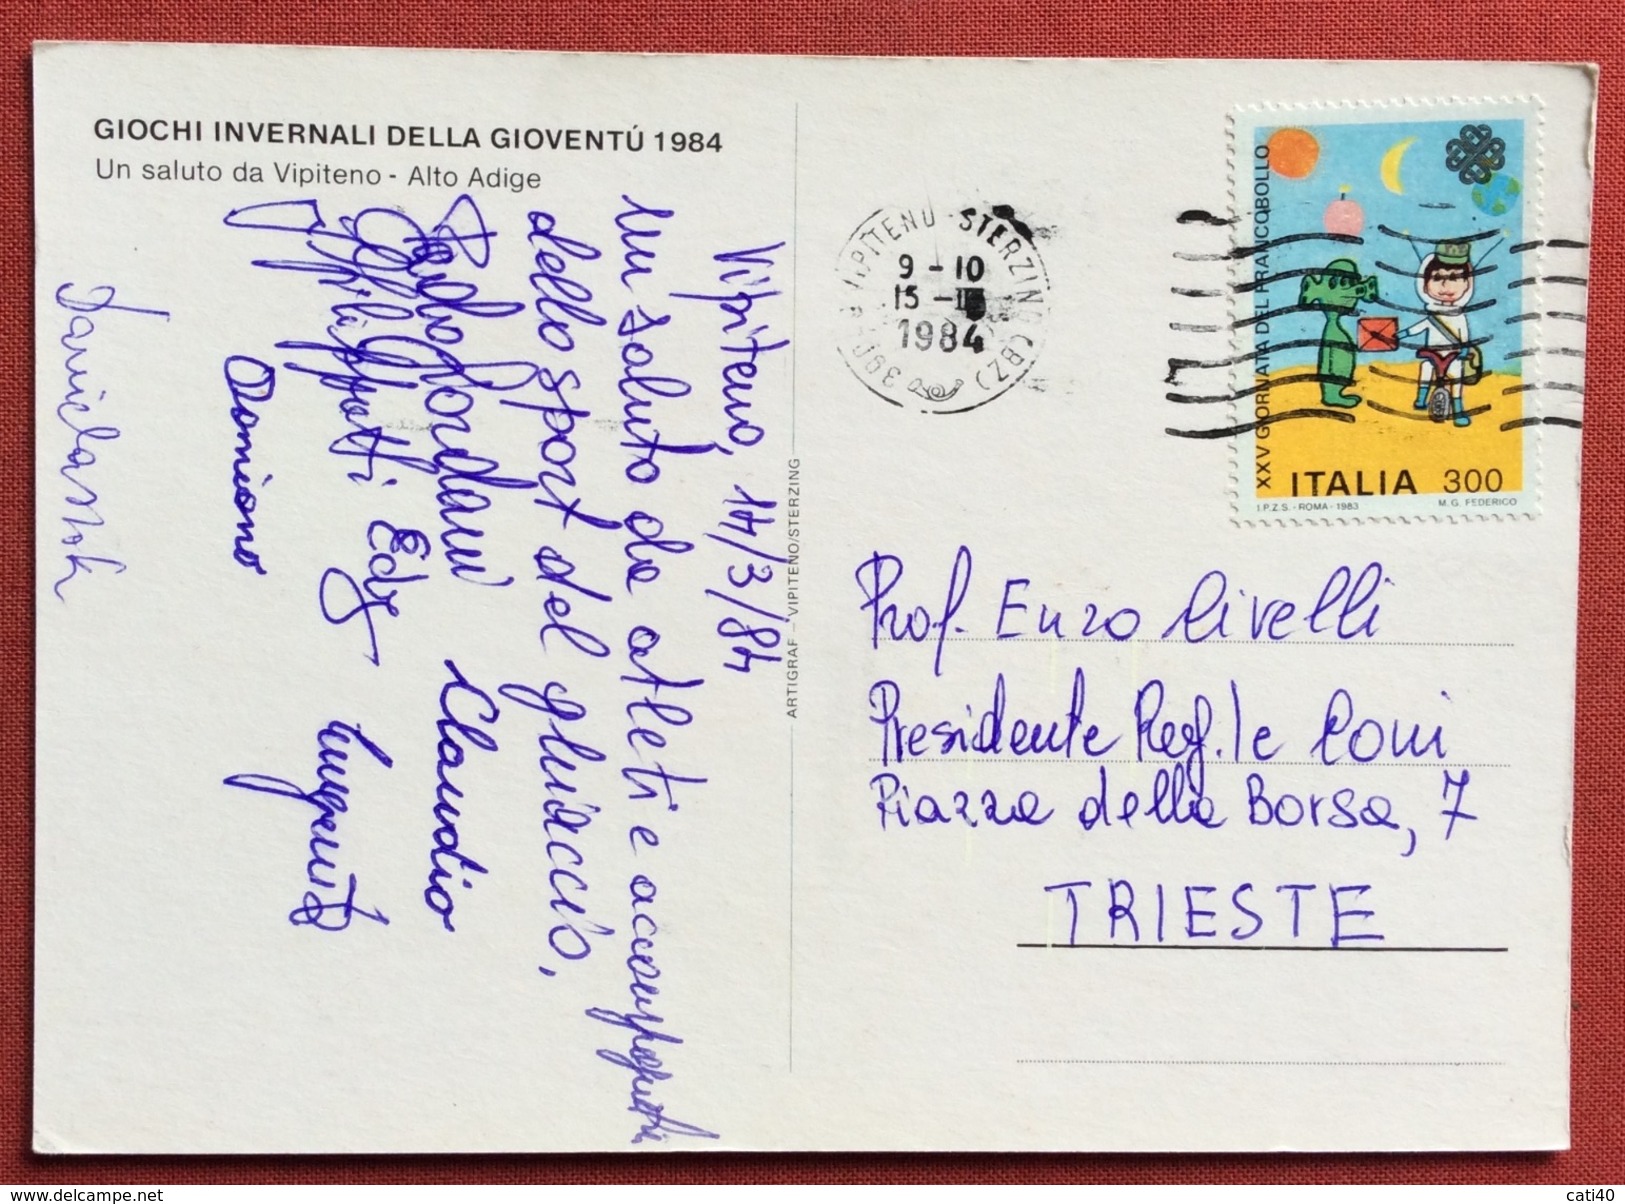 GIOCHI INVERNALI DELLA GIOVENTÚ 1984
Un saluto da Vipiteno - Alto Adige
Vipiteno, 14/3/84
un saluto da atleti e accompagnatori
dello sport del ghiaccio.
Claudio
Edy
Damiano
ARTIGRAF – VIPITENO/STERZING
VIPITENO STERZING (BZ)
9 - 10
15 -
1984
XXV GIORNATA DEL FRANCOBOLLO
ITALIA 300
I.P.Z.S. - ROMA - 1983 M. G. FEDERICO
Prof. Enzo Civelli
Presidente Reg.le Coni
Piazza della Borsa, 7
TRIESTE
cati40